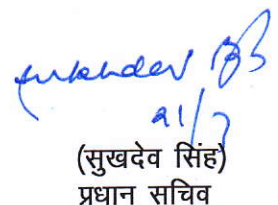 Sukhdev
21/7
(सुखदेव सिंह)
प्रधान सचिव